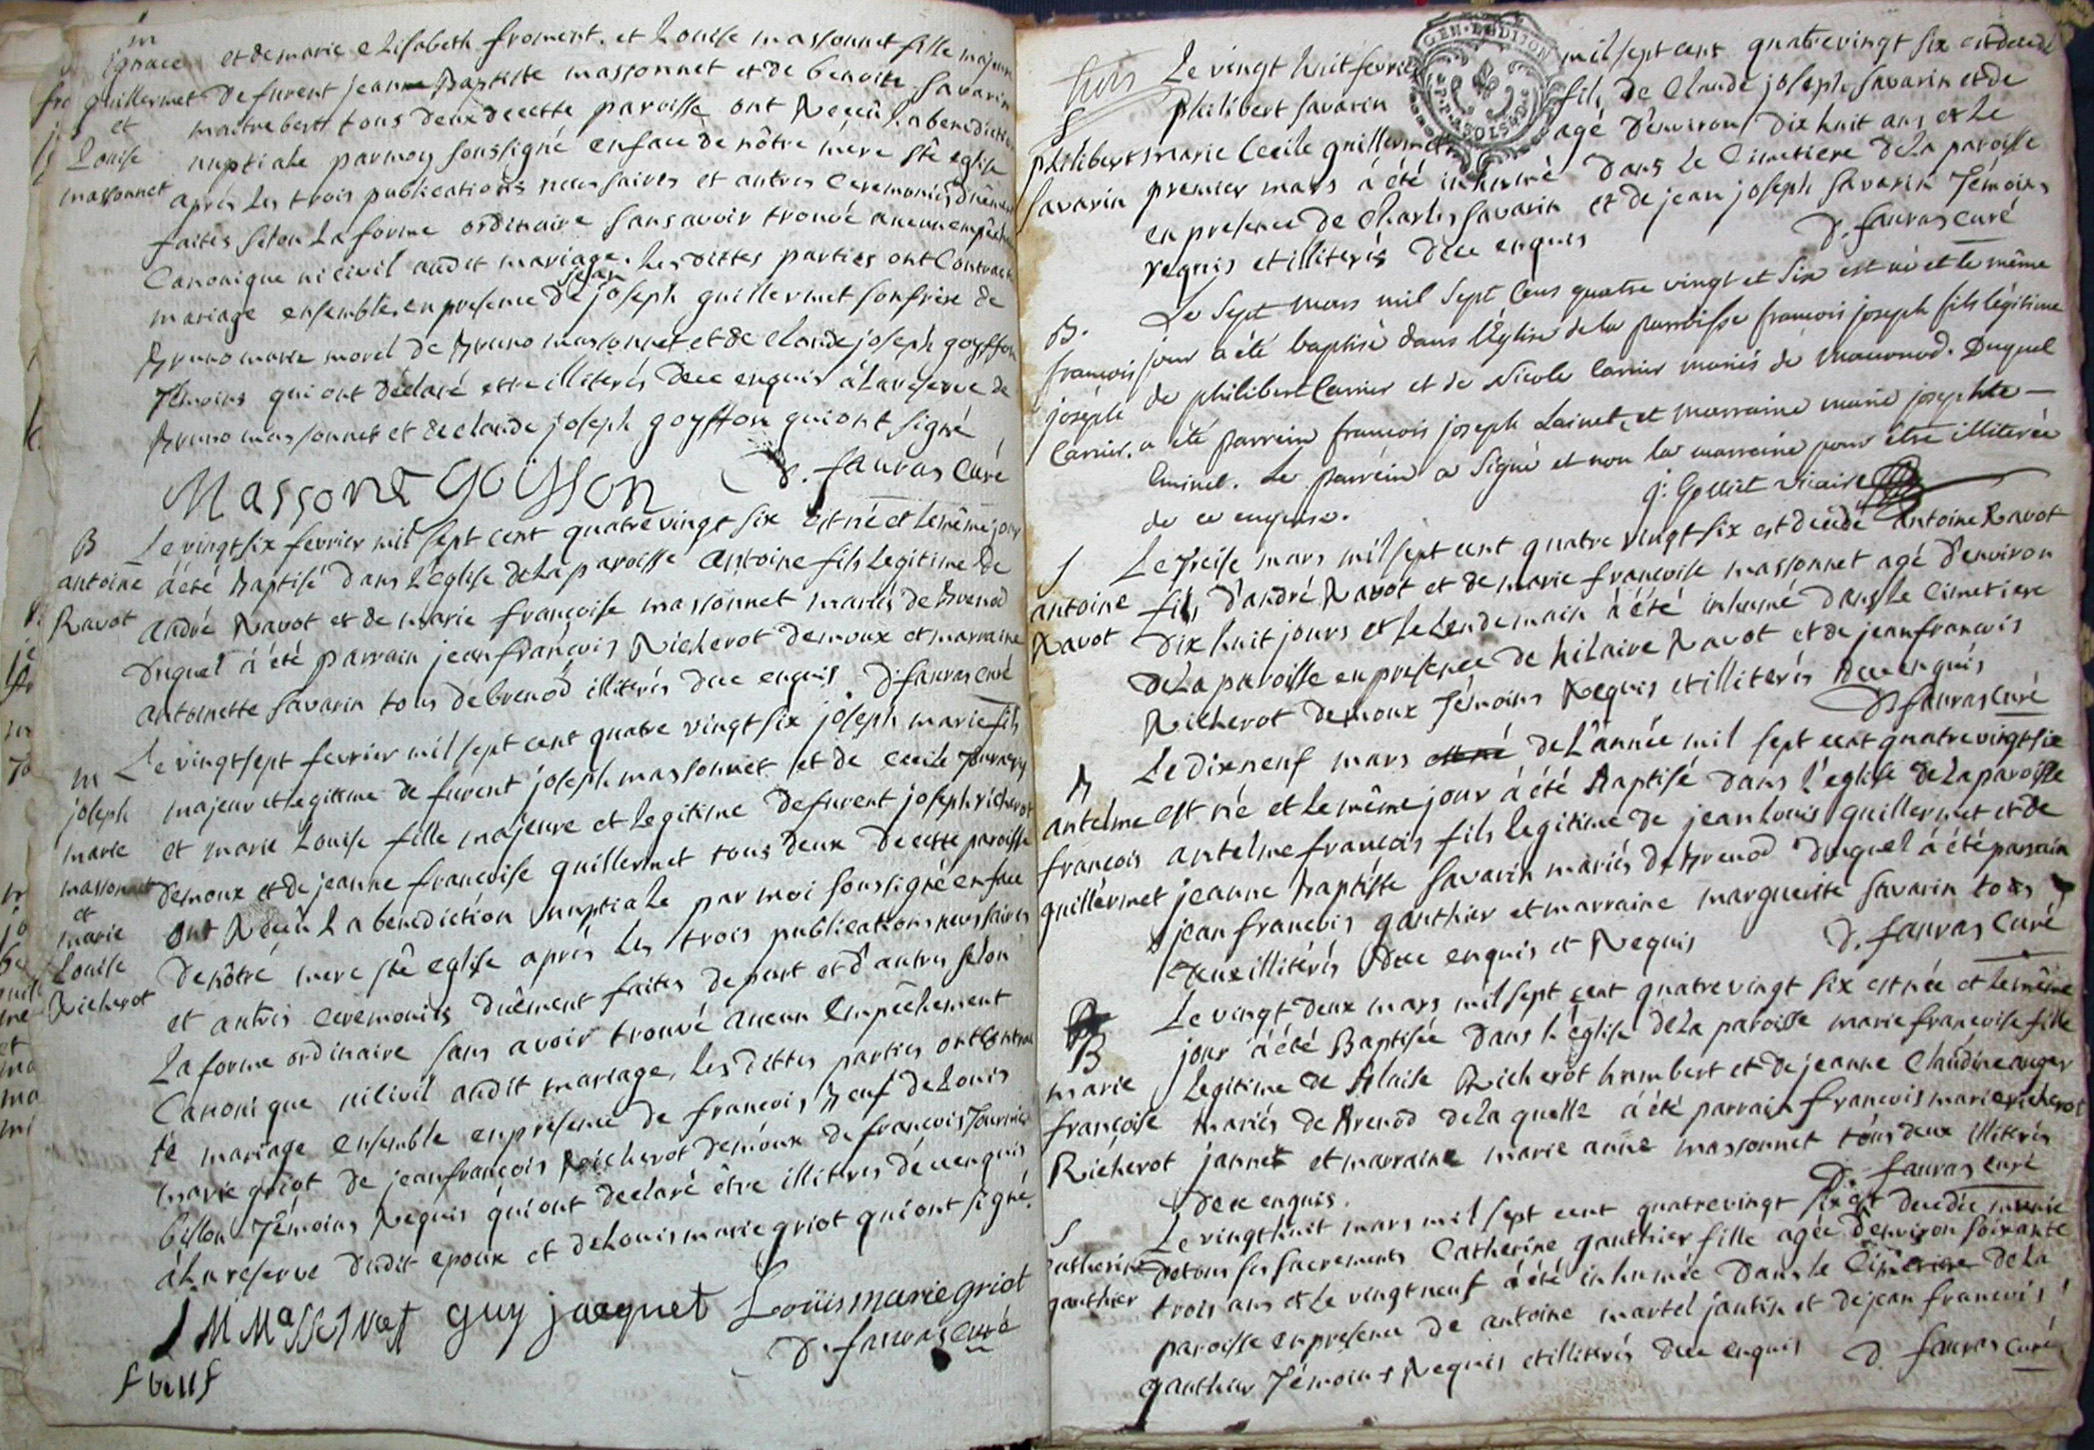 m
ignace et de marie elisabeth froment. et Louise massonnet fille majeure
guillermet de furent jean Baptiste massonnet et de benoite savarin
et maitrebert tous deux de cette paroisse ont Reçeû la benediction
Louise nuptiale par moy soussigné en face de nôtre mére ste eglise
massonnet aprés les trois publications necessaires et autres ceremonies duêment
faites selon la forme ordinaire sans avoir trouvé aucun empêchement
Canonique ni civil audit mariage. les dittes parties ont Contracté
mariage ensemble en presence de jean joseph guillermet son frére de
Bruno marie morel de Bruno massonnet et de claude joseph goyffon
Témoins qui ont déclaré etre illiterés de ce enquis à la reserve de
Bruno massonnet et de claude joseph goyffon qui ont signé
Massonet Goiffon D. fauras Curé
B Le vingt six fevrier mil sept cent quatre vingt six est né et le même jour
antoine à été Baptisé dans l'église de la paroisse antoine fils legitime de
Ravot andré Ravot et de marie françoise massonnet mariés de Brenod
duquel à été parrain jean françois Richerot demoux et marraine
antoinette savarin tous de brenod illiterés de ce enquis. D. fauras curé
m Le vingt sept fevrier mil sept cent quatre vingt six joseph marie fils
joseph majeur et legitime de furent joseph massonnet et de cecile
marie et marie Louise fille majeure et legitime de furent joseph richerot
massonnet demoux et de jeanne françoise guillermet tous deux de cette paroisse
et ont Reçeû la benediction nuptiale par moi soussigné en face
marie de nôtre mere ste eglise aprés les trois publications necessaires
Louise et autres ceremonies duêment faites de part et d'autres selon
Richerot la forme ordinaire sans avoir trouvé aucun empêchement
Canonique ni civil audit mariage, les dittes parties ont Contrac
té mariage ensemble en présence de françois Beuf de Louis
marie griot de jean françois Richerot demoux de françois
billon Témoins Requis qui ont declaré être illiterés de ce enquis
à la reserve dudit epoux et de Louis marie griot qui ont signé.
J M Massonnet guy jacquet Loüis marie griot
D. fauras curé
f beuf
huis
Le vingt huit fevrier mil sept cent quatre vingt six est decedé
S philibert savarin fils de Claude joseph savarin et de
philibert marie Cecile guillermet agé d'environ dix huit ans et le
savarin premier mars à été inhumé dans le Cimetiere de la paroisse
en presence de Charles savarin et de jean joseph savarin Témoins
requis et illiterés de ce enquis D. fauras curé
GEN. DE DIJON
B. Le Sept mars mil Sept Cens quatre vingt et Six est né et le même
francois jour a été baptisé dans l'Eglise de la parroisse francois joseph fils légitime
joseph de philibert Carrier et de Nicole Carrier mariés de . Duquel
Carrier. a été parrein francois joseph Lainet, et marraine marie josephte
. Le parrein a Signé et non la marraine pour être illiterée
de ce enquise. j. Golliet vicaire
S Le Treise mars mil sept cent quatre vingt six est decedé antoine Ravot
antoine fils d'andré Ravot et de marie françoise massonnet agé d'environ
Ravot dix huit jours et le lendemain à été inhumé dans le Cimetiere
de la paroisse en presence de hilaire Ravot et de jean françois
Richerot demoux Témoins Requis et illiterés de ce enquis
D. fauras curé
B Le dixneuf mars de l'année mil sept cent quatre vingt six
antelme est né et le même jour à été Baptisé dans l'eglise de la paroisse
françois antelme françois fils legitime de jean Louis guillermet et de
guillermet jeanne baptiste savarin mariés de Brenod duquel à été parrain
jean françois gauthier et marraine marguerite savarin tous
deux illitérés de ce enquis et Requis D. fauras Curé
Le vingt deux mars mil sept cent quatre vingt six est née et le même
B jour à été Baptisée dans l'église de la paroisse marie françoise fille
marie Legitime de Blaise Richerot humbert et de jeanne Claudine auger
françoise mariés de Brenod de la quelle à été parrain francois marie richerot
Richerot jannet et marraine marie anne massonnet tous deux illiterés
de ce enquis. D. fauras curé
S Le vingt huit mars mil sept cent quatre vingt six est decedée munie
Catherine de tous ses sacrements Catherine gauthier fille agée d'environ soixante
gauthier trois ans et le vingt neuf à été inhumée dans le Cimetiere de la
paroisse en presence de antoine martel jantin et de jean francois
gauthier Témoins Requis et illiterés de ce enquis D. fauras Curé